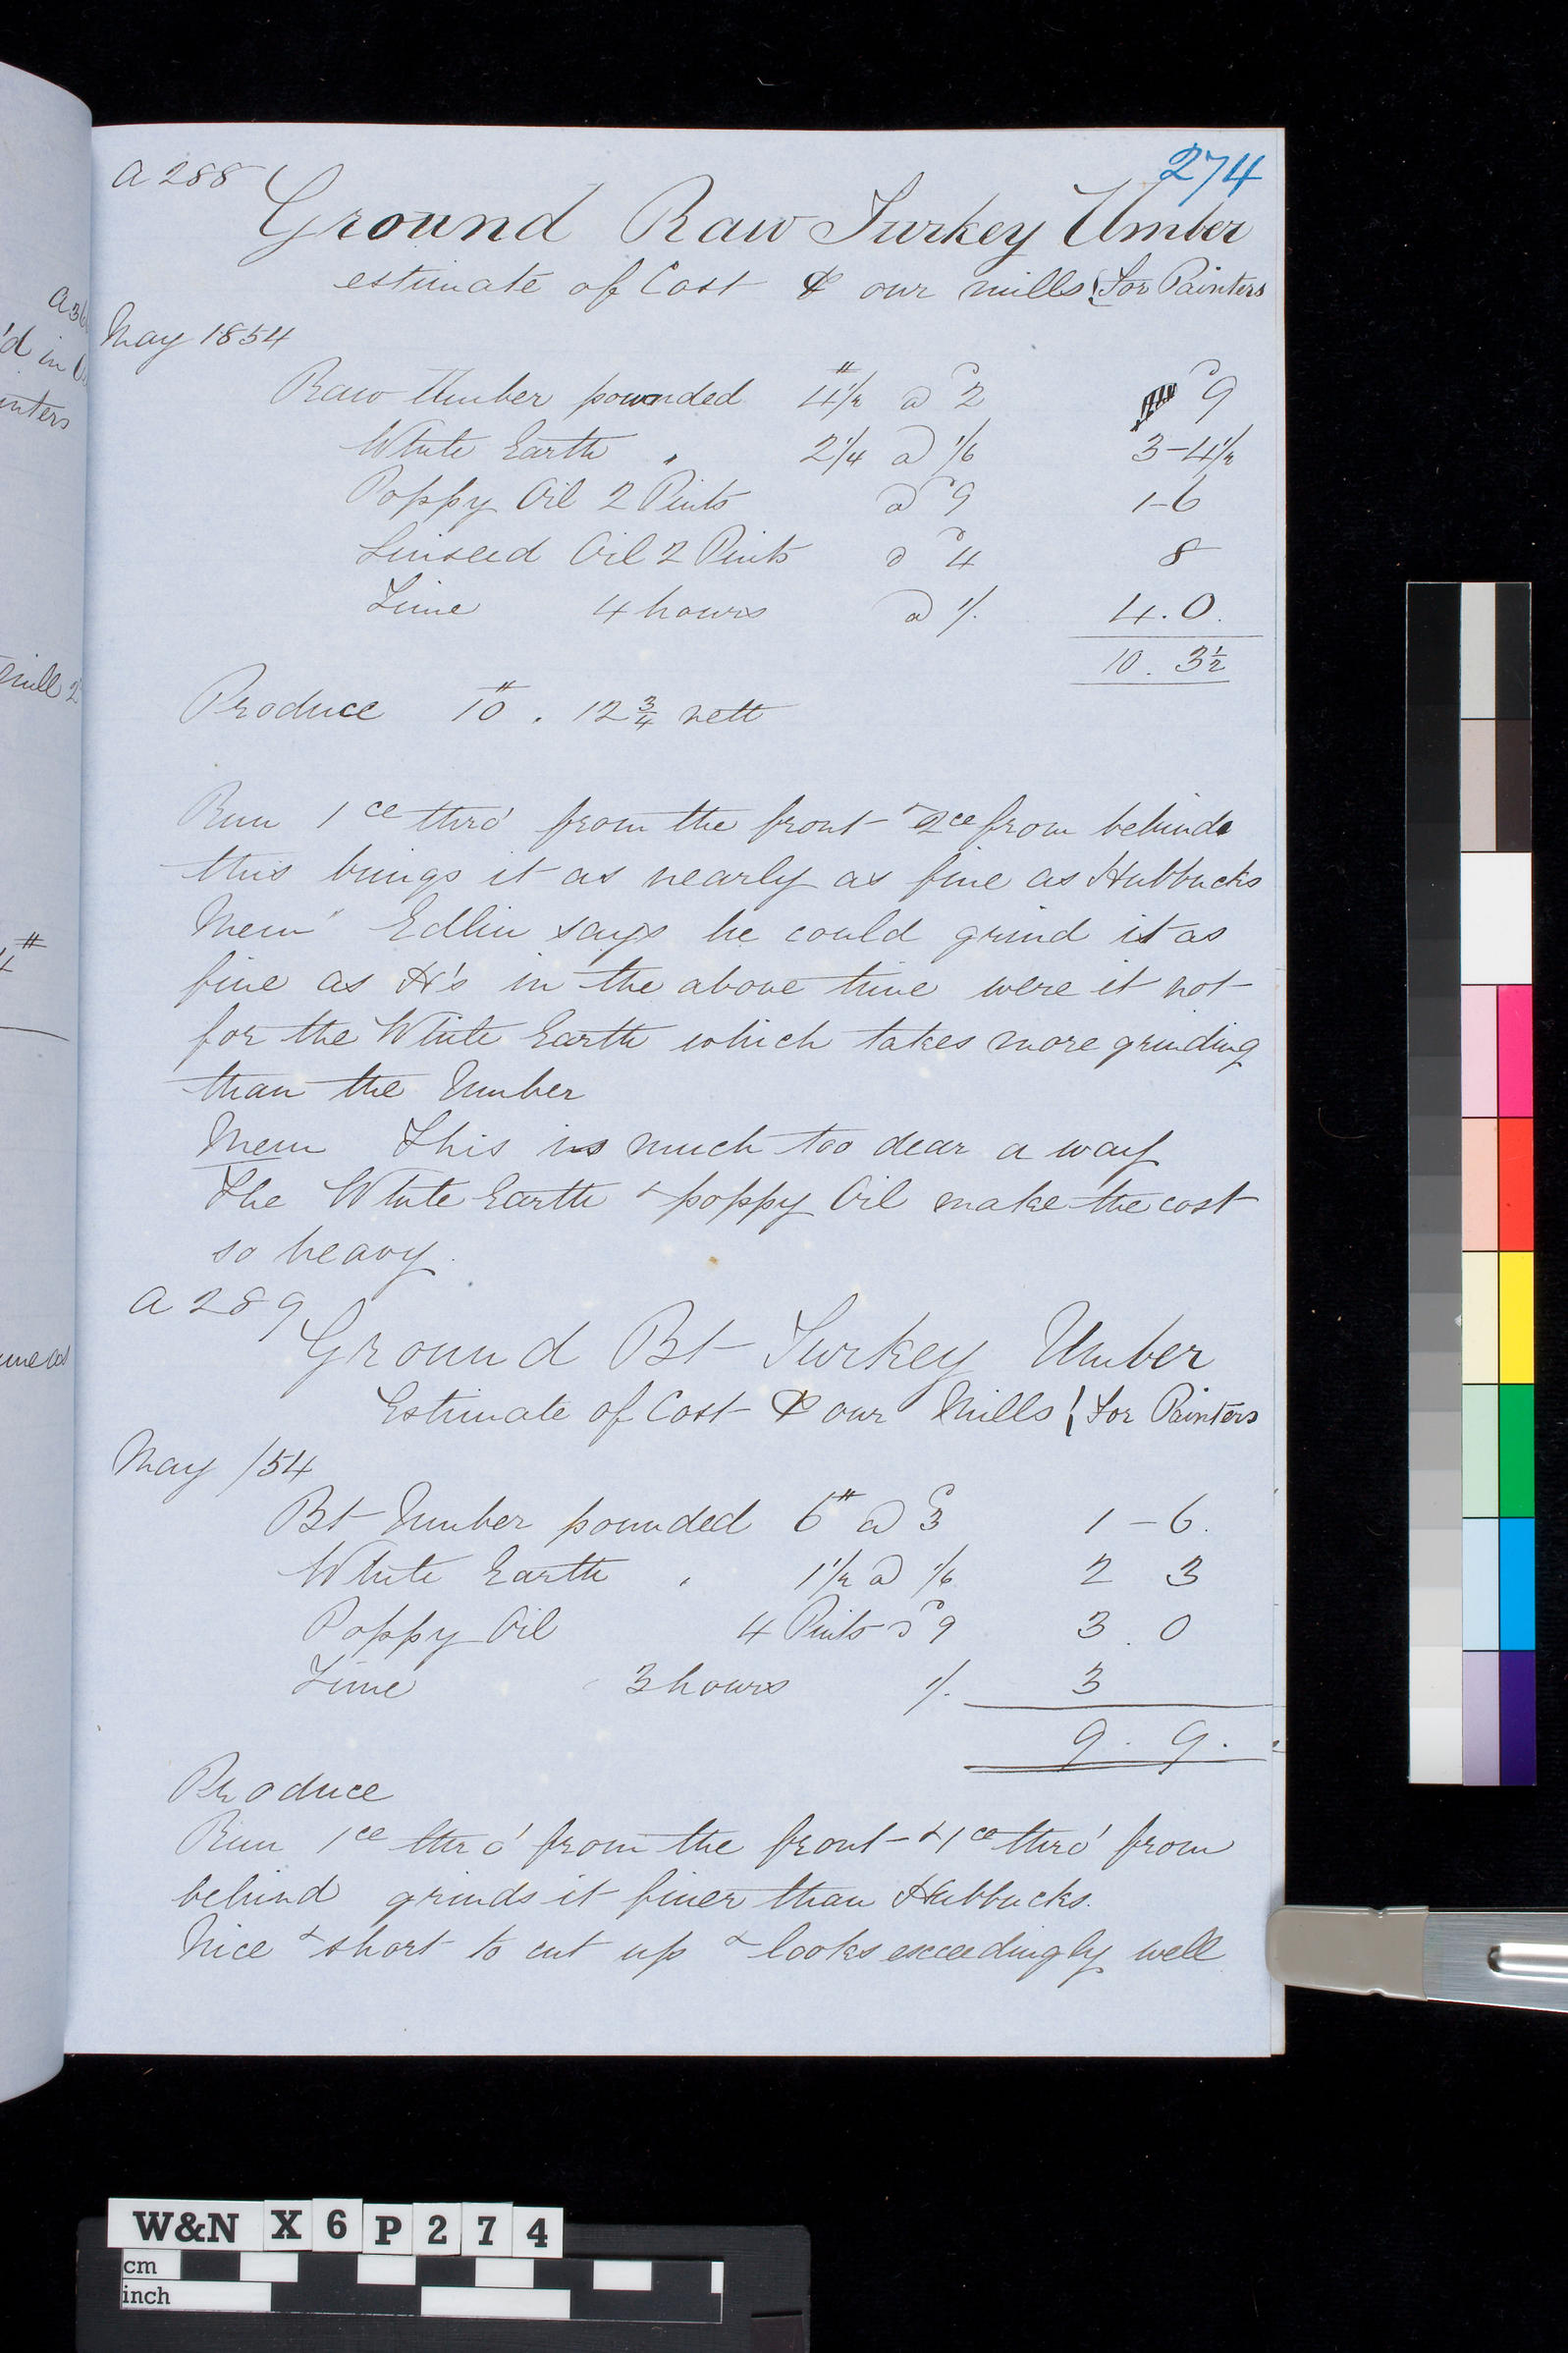 274
A 288
Ground Raw Turkey Umber
estimate of Cost ℔ our mills (For Painters
May 1854
Raw Umber pounded 4 1/2 # @ d 2 d 9
White Earth " 2 1/4 @ 1/6 3-4 1/2
Poppy Oil 2 Pints @ d 9 1-6
Linseed Oil 2 Pints @ d 4 8
Time 4 hours @ 1/. 4.0.
10. 3 1/2
Produce 10 #. 12 3/4 nett
Run 1ce thro' from the front & 2ce from behind
this brings it as nearly as fine as Hubbucks
Mem" Edlin says he could grind it as
fine as H's in the above time were it not
for the White Earth which takes more grinding
than the Umber
Mem This is much too dear a way
The White Earth & poppy Oil make the cost
so heavy.
A 289
Ground Bt Turkey Umber
Estimate of Cost ℔ our Mills (For Painters
May /54
Bt Umber pounded 6 # @ d 3 1-6.
White Earth " 1 1/2 @ 1/6 2 3
Poppy Oil 4 Pints @ d 9 3.0
Time 3 hours 1/. 3
9.9.
Produce
Run 1ce thro' from the front & 1ce thro' from
behind grinds it finer than Hubbucks.
Nice & short to cut up & looks exceedingly well
W&N X 6 P 2 7 4
cm
inch